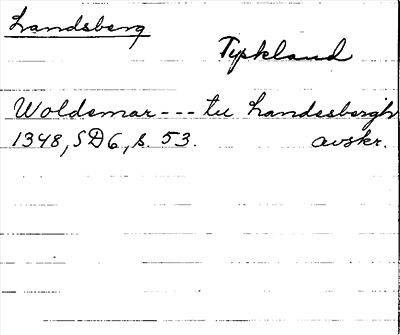 Landsberg
Tyskland
Woldemar --- til Landesbergh
1348, SD6, s. 53. avskr.